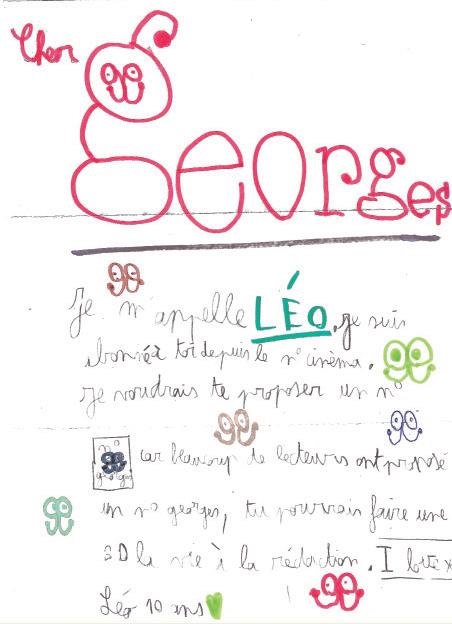 Cher
georges
Je m'appelle LÉO, je suis
abonné à toi depuis le n° cinéma.
Je voudrais te proposer un n°
n°
georges
car beaucoup de lecteurs ont proposé
un n° georges, tu pourrais faire une
BD la vie à la rédaction. I
Léo 10 ans